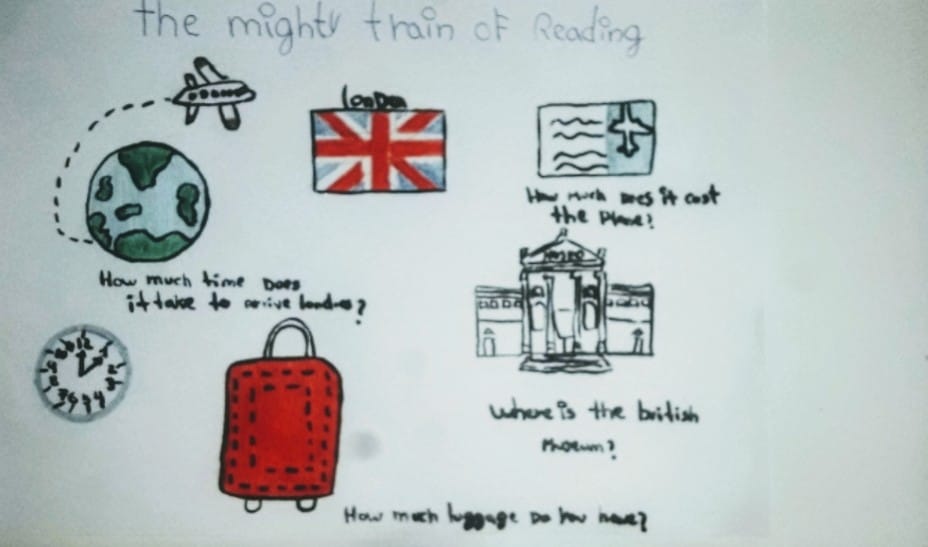 the mighty train of Reading
London
How much Does it cost
the Plane?
How much time Does
it take to arrive londres?
MUSEO
Where is the british
Museum?
How much luggage Do you have?